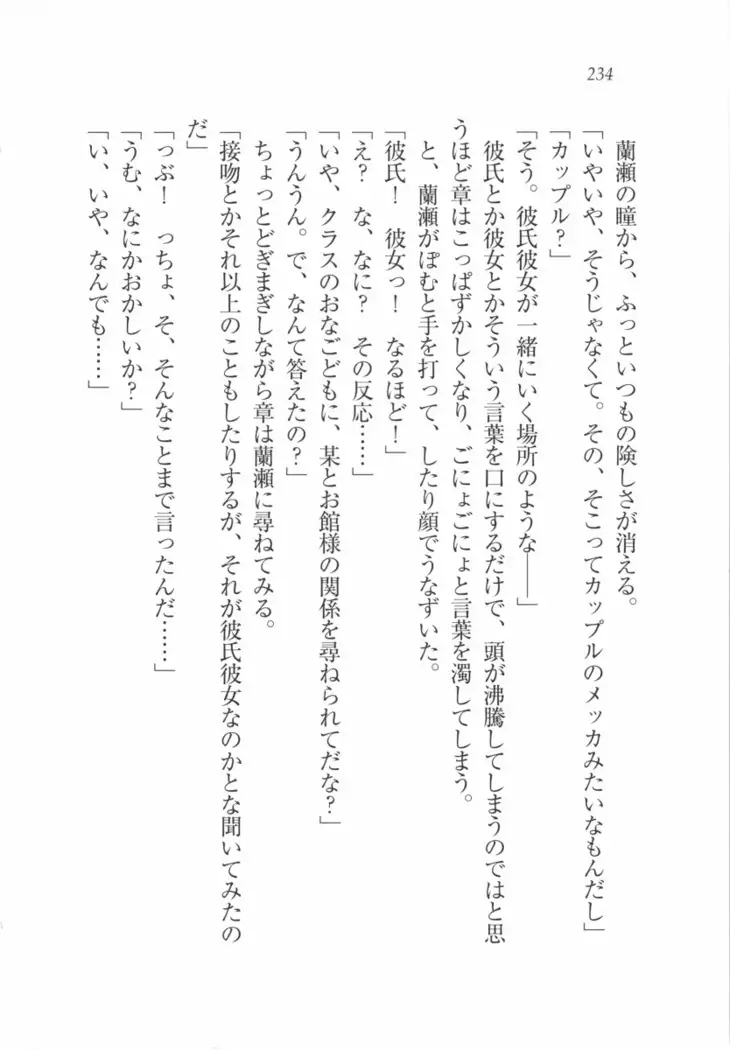 234
蘭瀬の瞳から、ふっといつもの険しさが消える。
「いやいや、そうじゃなくて。その、そこってカップルのメッカみたいなもんだし」
「カップル？」
「そう。彼氏彼女が一緒にいく場所のような――」
彼氏とか彼女とかそういう言葉を口にするだけで、頭が沸騰してしまうのではと思
うほど章はこっぱずかしくなり、ごにょごにょと言葉を濁してしまう。
と、蘭瀬がぽむと手を打って、したり顔でうなずいた。
「彼氏！　彼女っ！　なるほど！」
「え？　な、なに？　その反応……」
「いや、クラスのおなごどもに、某とお館様の関係を尋ねられてだな？」
「うんうん。で、なんて答えたの？」
ちょっとどぎまぎしながら章は蘭瀬に尋ねてみる。
「接吻とかそれ以上のこともしたりするが、それが彼氏彼女なのかとな聞いてみたの
だ」
「っぶ！　っちょ、そ、そんなことまで言ったんだ……」
「うむ、なにかおかしいか？」
「い、いや、なんでも……」